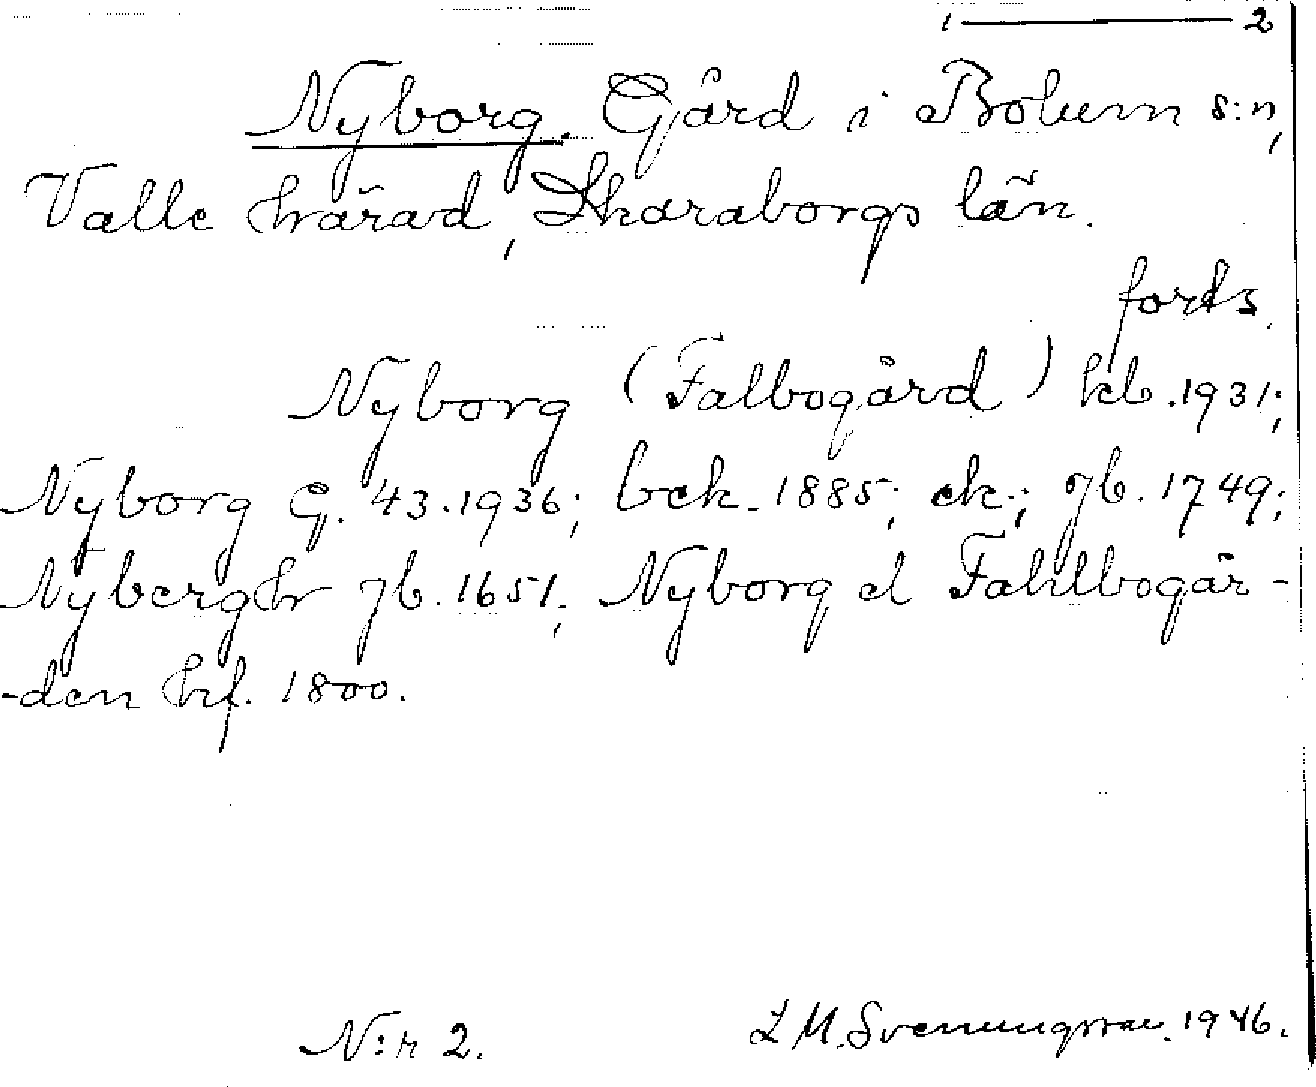 1 ——— 2
Nyborg. Gård i Bolum s:n,
Valle härad, Skaraborgs län.
forts.
Nyborg (Falbogård) kb. 1931;
Nyborg G. 43. 1936; bek. 1885; ek.; jb. 1749;
Nybergh jb. 1651; Nyborg el Fahlbogår-
-den hf. 1800.
N:r 2. L M. Svenungsson. 1946.